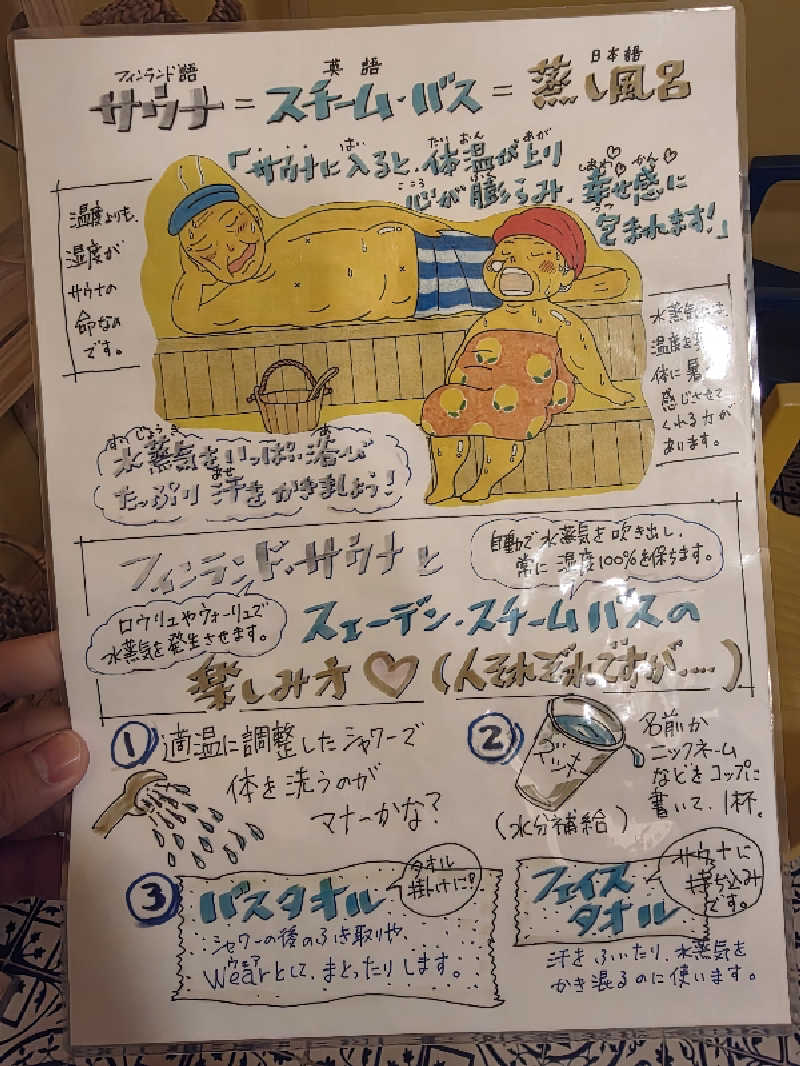 フィンランド語 英語 日本語
サウナ=スチーム・バス=蒸し風呂
「サウナに入ると、体温が上り
はい たいおん あが
心が膨らみ、幸せ感に
こころ しあわ かん
包まれます!」
つつ
温度よりも、
湿度が
サウナの
命なの
です。
水蒸気
温度を
体に暑
感じさせて
くれる力が
あります。
すいじょうき あ
水蒸気をいっぱい浴び
あせ
たっぷり汗をかきましょう!
フィンランド・サウナと
自動で水蒸気を吹き出し、
常に湿度100%を保ちます。
ロウリュやヴォーリュで
水蒸気を発生させます。
スェーデン・スチームバスの
楽しみ方♡(人それぞれですが....)
① 適温に調整したシャワーで
体を洗うのが
マナーかな?
② 名前か
ニックネーム
などをコップに
書いて、1杯。
(水分補給)
③ バスタオル
タオル
掛けに!
シャワーの後のふき取りや、
ウェア
wearとして、まとったりします。
フェイス
タオル
サウナに
持ち込み
です。
汗をふいたり、水蒸気を
かき混るのに使います。